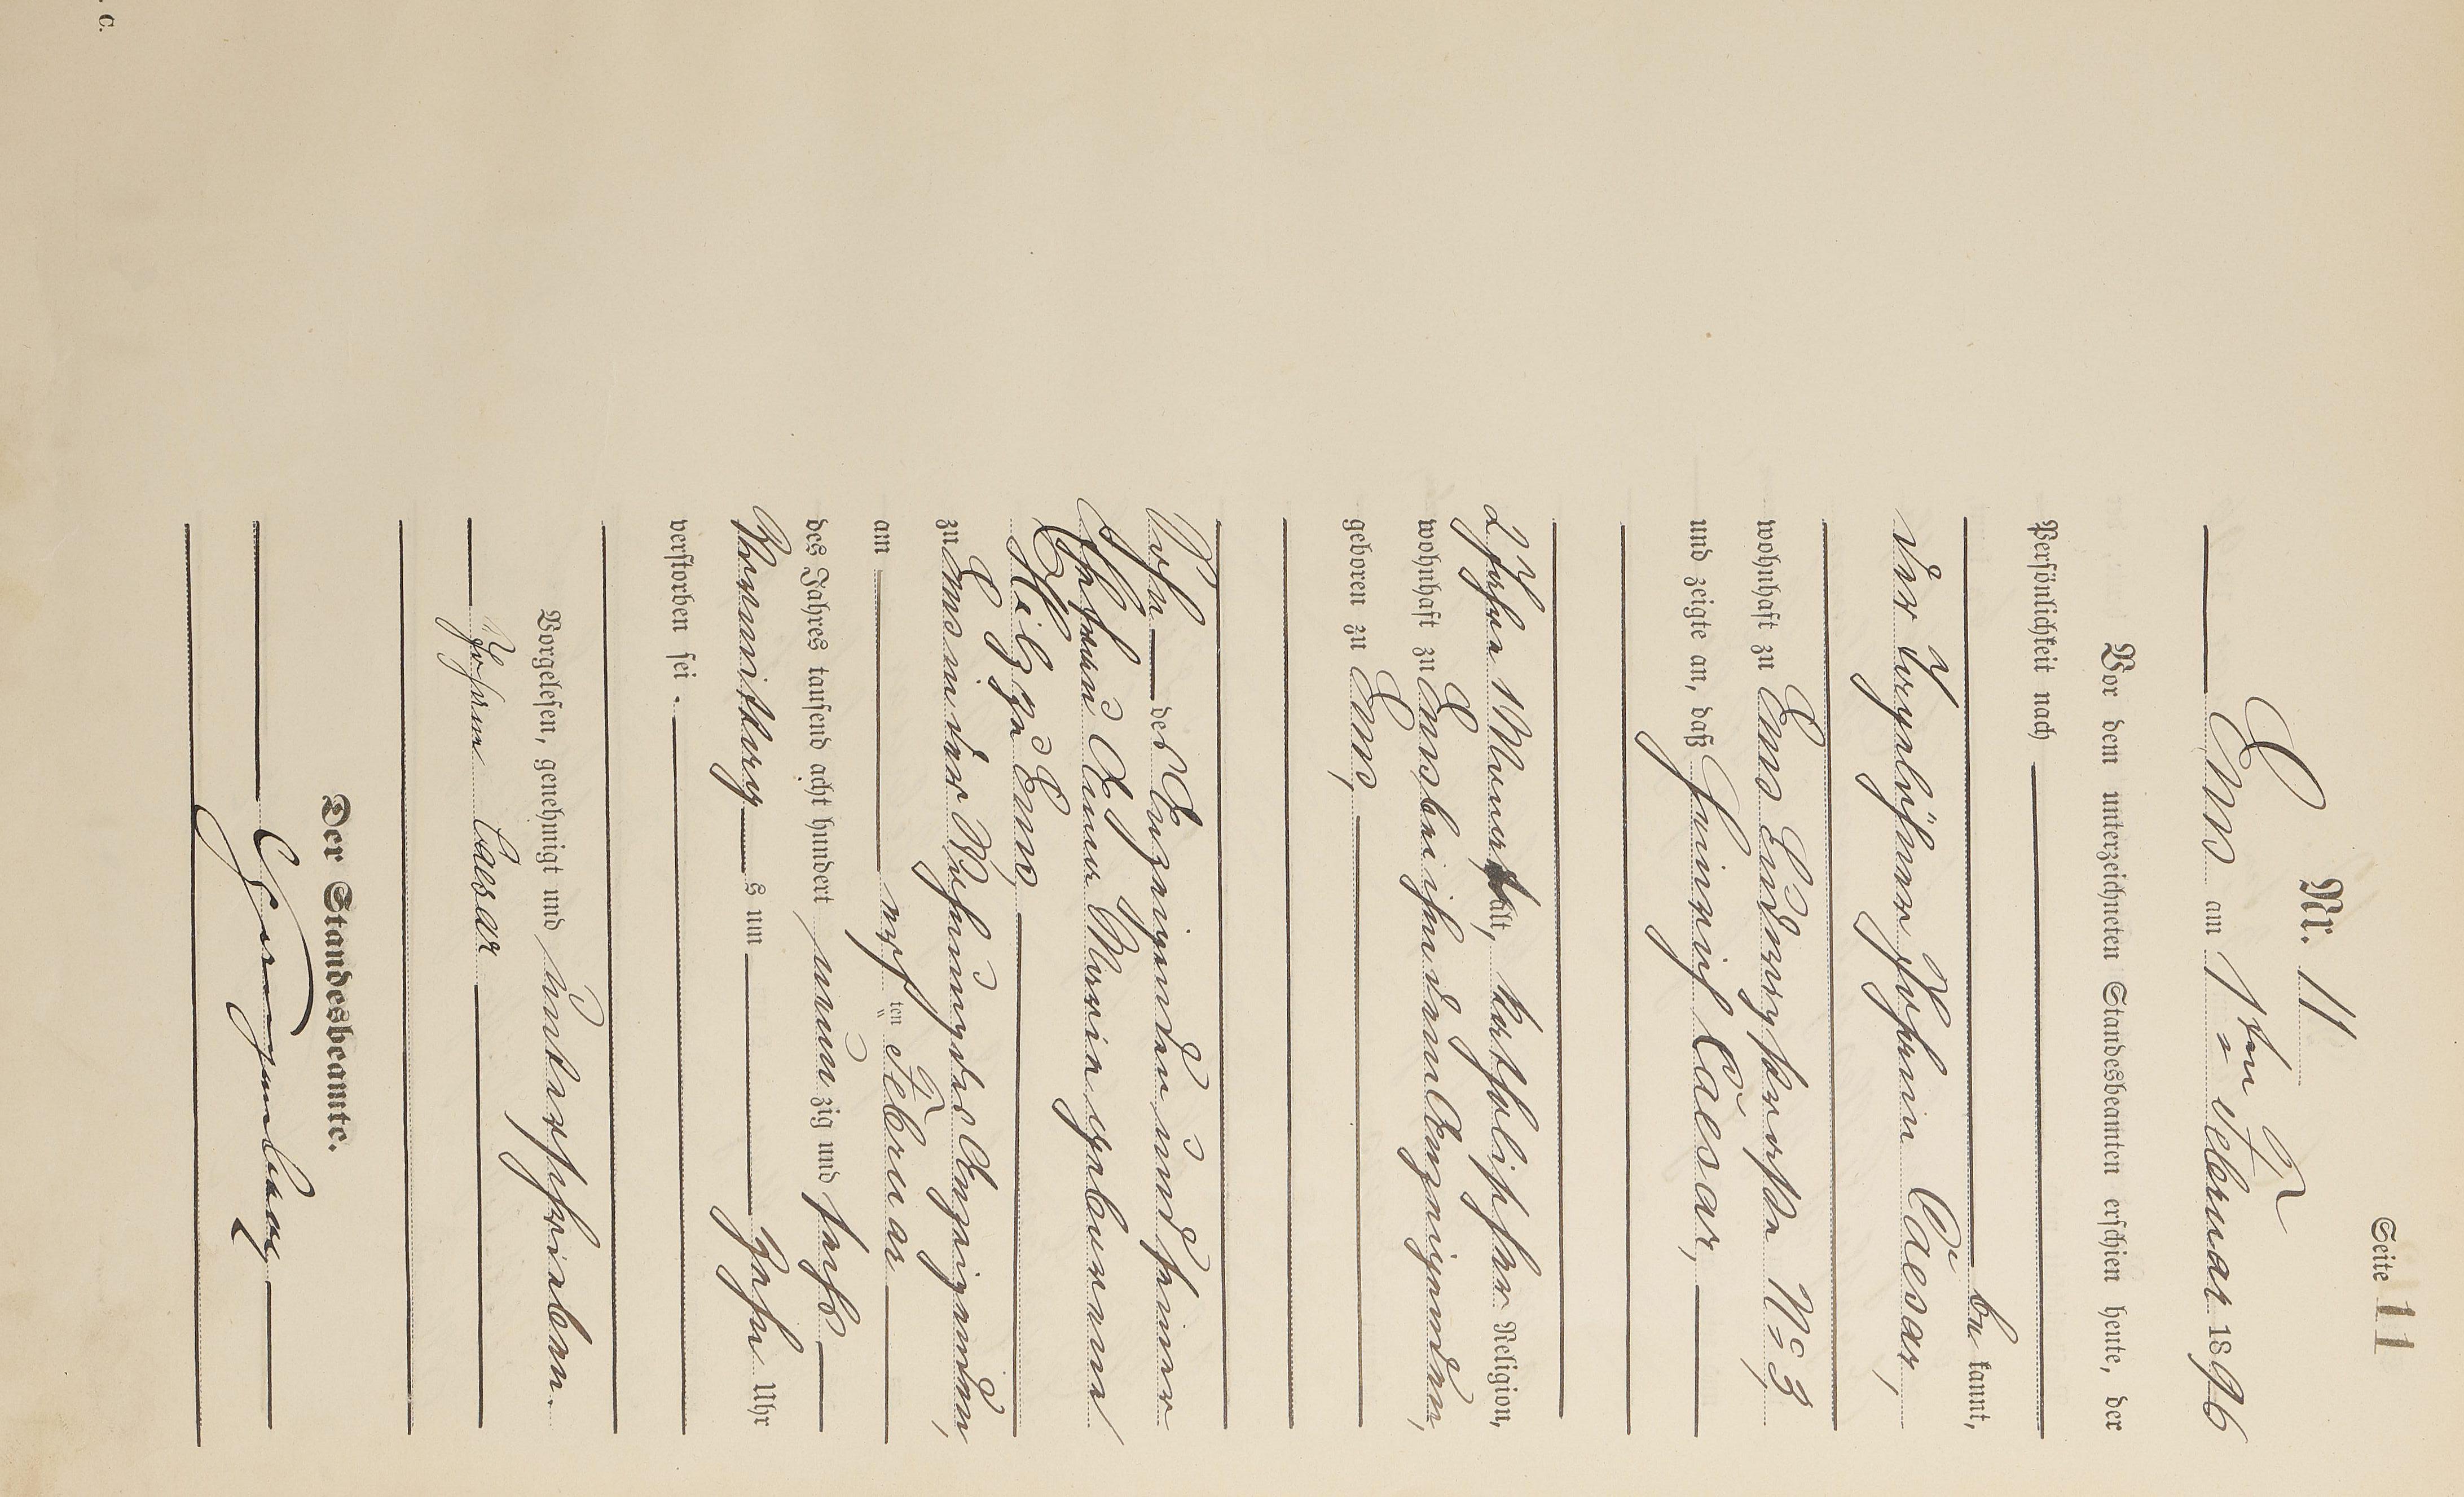 Seite 11
Nr. 11
Ems am 1ten Februar 1896
Vor dem unterzeichneten Standesbeamten erschien heute, der
Persönlichkeit nach
be kannt,
der Taglöhner Johann Caesar,
wohnhaft zu Ems Lindengstraße No 3,
und zeigte an, daß Heinrich Caesar,
2 Jahre 1 Monat alt, katholischer Religion,
wohnhaft zu Ems bei ihm dem Anzeigenden,
geboren zu Ems,
Sohn des Anzeigenden und seiner
Ehefrau Anna Maria geborenen
Hilz zu Ems
zu Ems in der Wohnung des Anzeigenden,
am ersten Februar
des Jahres tausend acht hundert neunzig und sechs
Vormittags um Zehn Uhr
verstorben sei.
Vorgelesen, genehmigt und unterschrieben.
Johann Caesar
Der Standesbeamte.